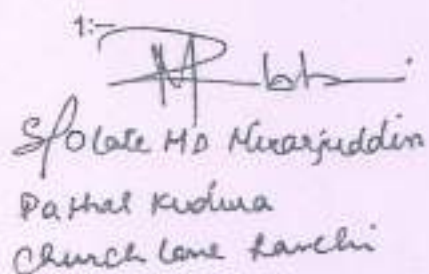 1:-
S/o Late MD Merajuddin
Pathal Kudwa
Church Lane Ranchi